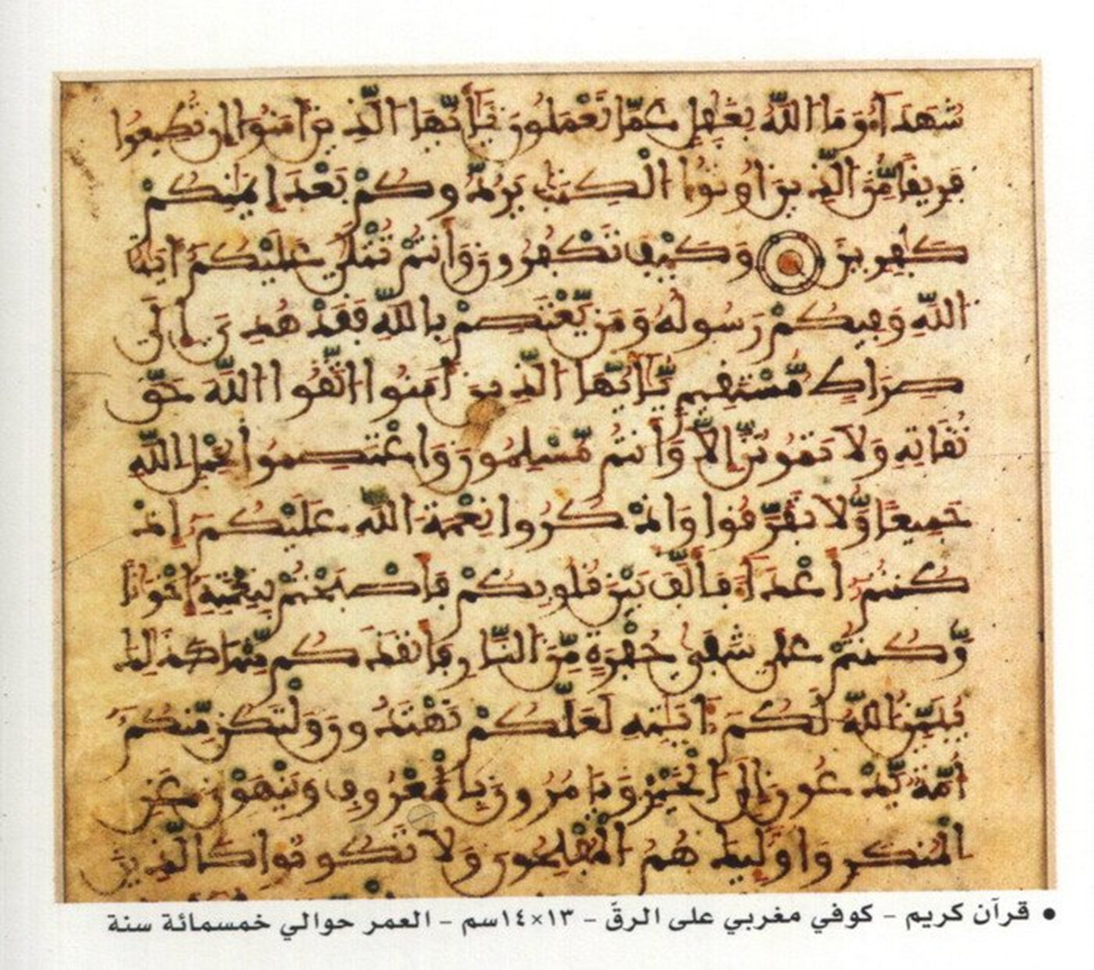 شُهَدَآءُ وَمَا اللَّهُ بِغَٰفِلٍ عَمَّا تَعْمَلُونَ يَٰٓأَيُّهَا الَّذِينَ ءَامَنُوٓا إِن تُطِيعُوا
فَرِيقًا مِّنَ الَّذِينَ أُوتُوا الْكِتَٰبَ يَرُدُّوكُم بَعْدَ إِيمَٰنِكُمْ
كَٰفِرِينَ وَكَيْفَ تَكْفُرُونَ وَأَنتُمْ تُتْلَىٰ عَلَيْكُمْ ءَايَٰتُ
اللَّهِ وَفِيكُمْ رَسُولُهُ وَمَن يَعْتَصِم بِاللَّهِ فَقَدْ هُدِيَ إِلَىٰ
صِرَٰطٍ مُّسْتَقِيمٍ يَٰٓأَيُّهَا الَّذِينَ ءَامَنُوا اتَّقُوا اللَّهَ حَقَّ
تُقَاتِهِ وَلَا تَمُوتُنَّ إِلَّا وَأَنتُم مُّسْلِمُونَ وَاعْتَصِمُوا بِحَبْلِ اللَّهِ
جَمِيعًا وَلَا تَفَرَّقُوا وَاذْكُرُوا نِعْمَةَ اللَّهِ عَلَيْكُمْ إِذْ
كُنتُمْ أَعْدَآءً فَأَلَّفَ بَيْنَ قُلُوبِكُمْ فَأَصْبَحْتُم بِنِعْمَتِهِ إِخْوَٰنًا
وَكُنتُمْ عَلَىٰ شَفَا حُفْرَةٍ مِّنَ النَّارِ فَأَنقَذَكُم مِّنْهَا كَذَٰلِكَ
يُبَيِّنُ اللَّهُ لَكُمْ ءَايَٰتِهِ لَعَلَّكُمْ تَهْتَدُونَ وَلْتَكُن مِّنكُمْ
أُمَّةٌ يَدْعُونَ إِلَى الْخَيْرِ وَيَأْمُرُونَ بِالْمَعْرُوفِ وَيَنْهَوْنَ عَنِ
الْمُنكَرِ وَأُولَٰئِكَ هُمُ الْمُفْلِحُونَ وَلَا تَكُونُوا كَالَّذِينَ
• قرآن كريم - كوفي مغربي على الرقّ - ١٣×١٤سم - العمر حوالي خمسمائة سنة